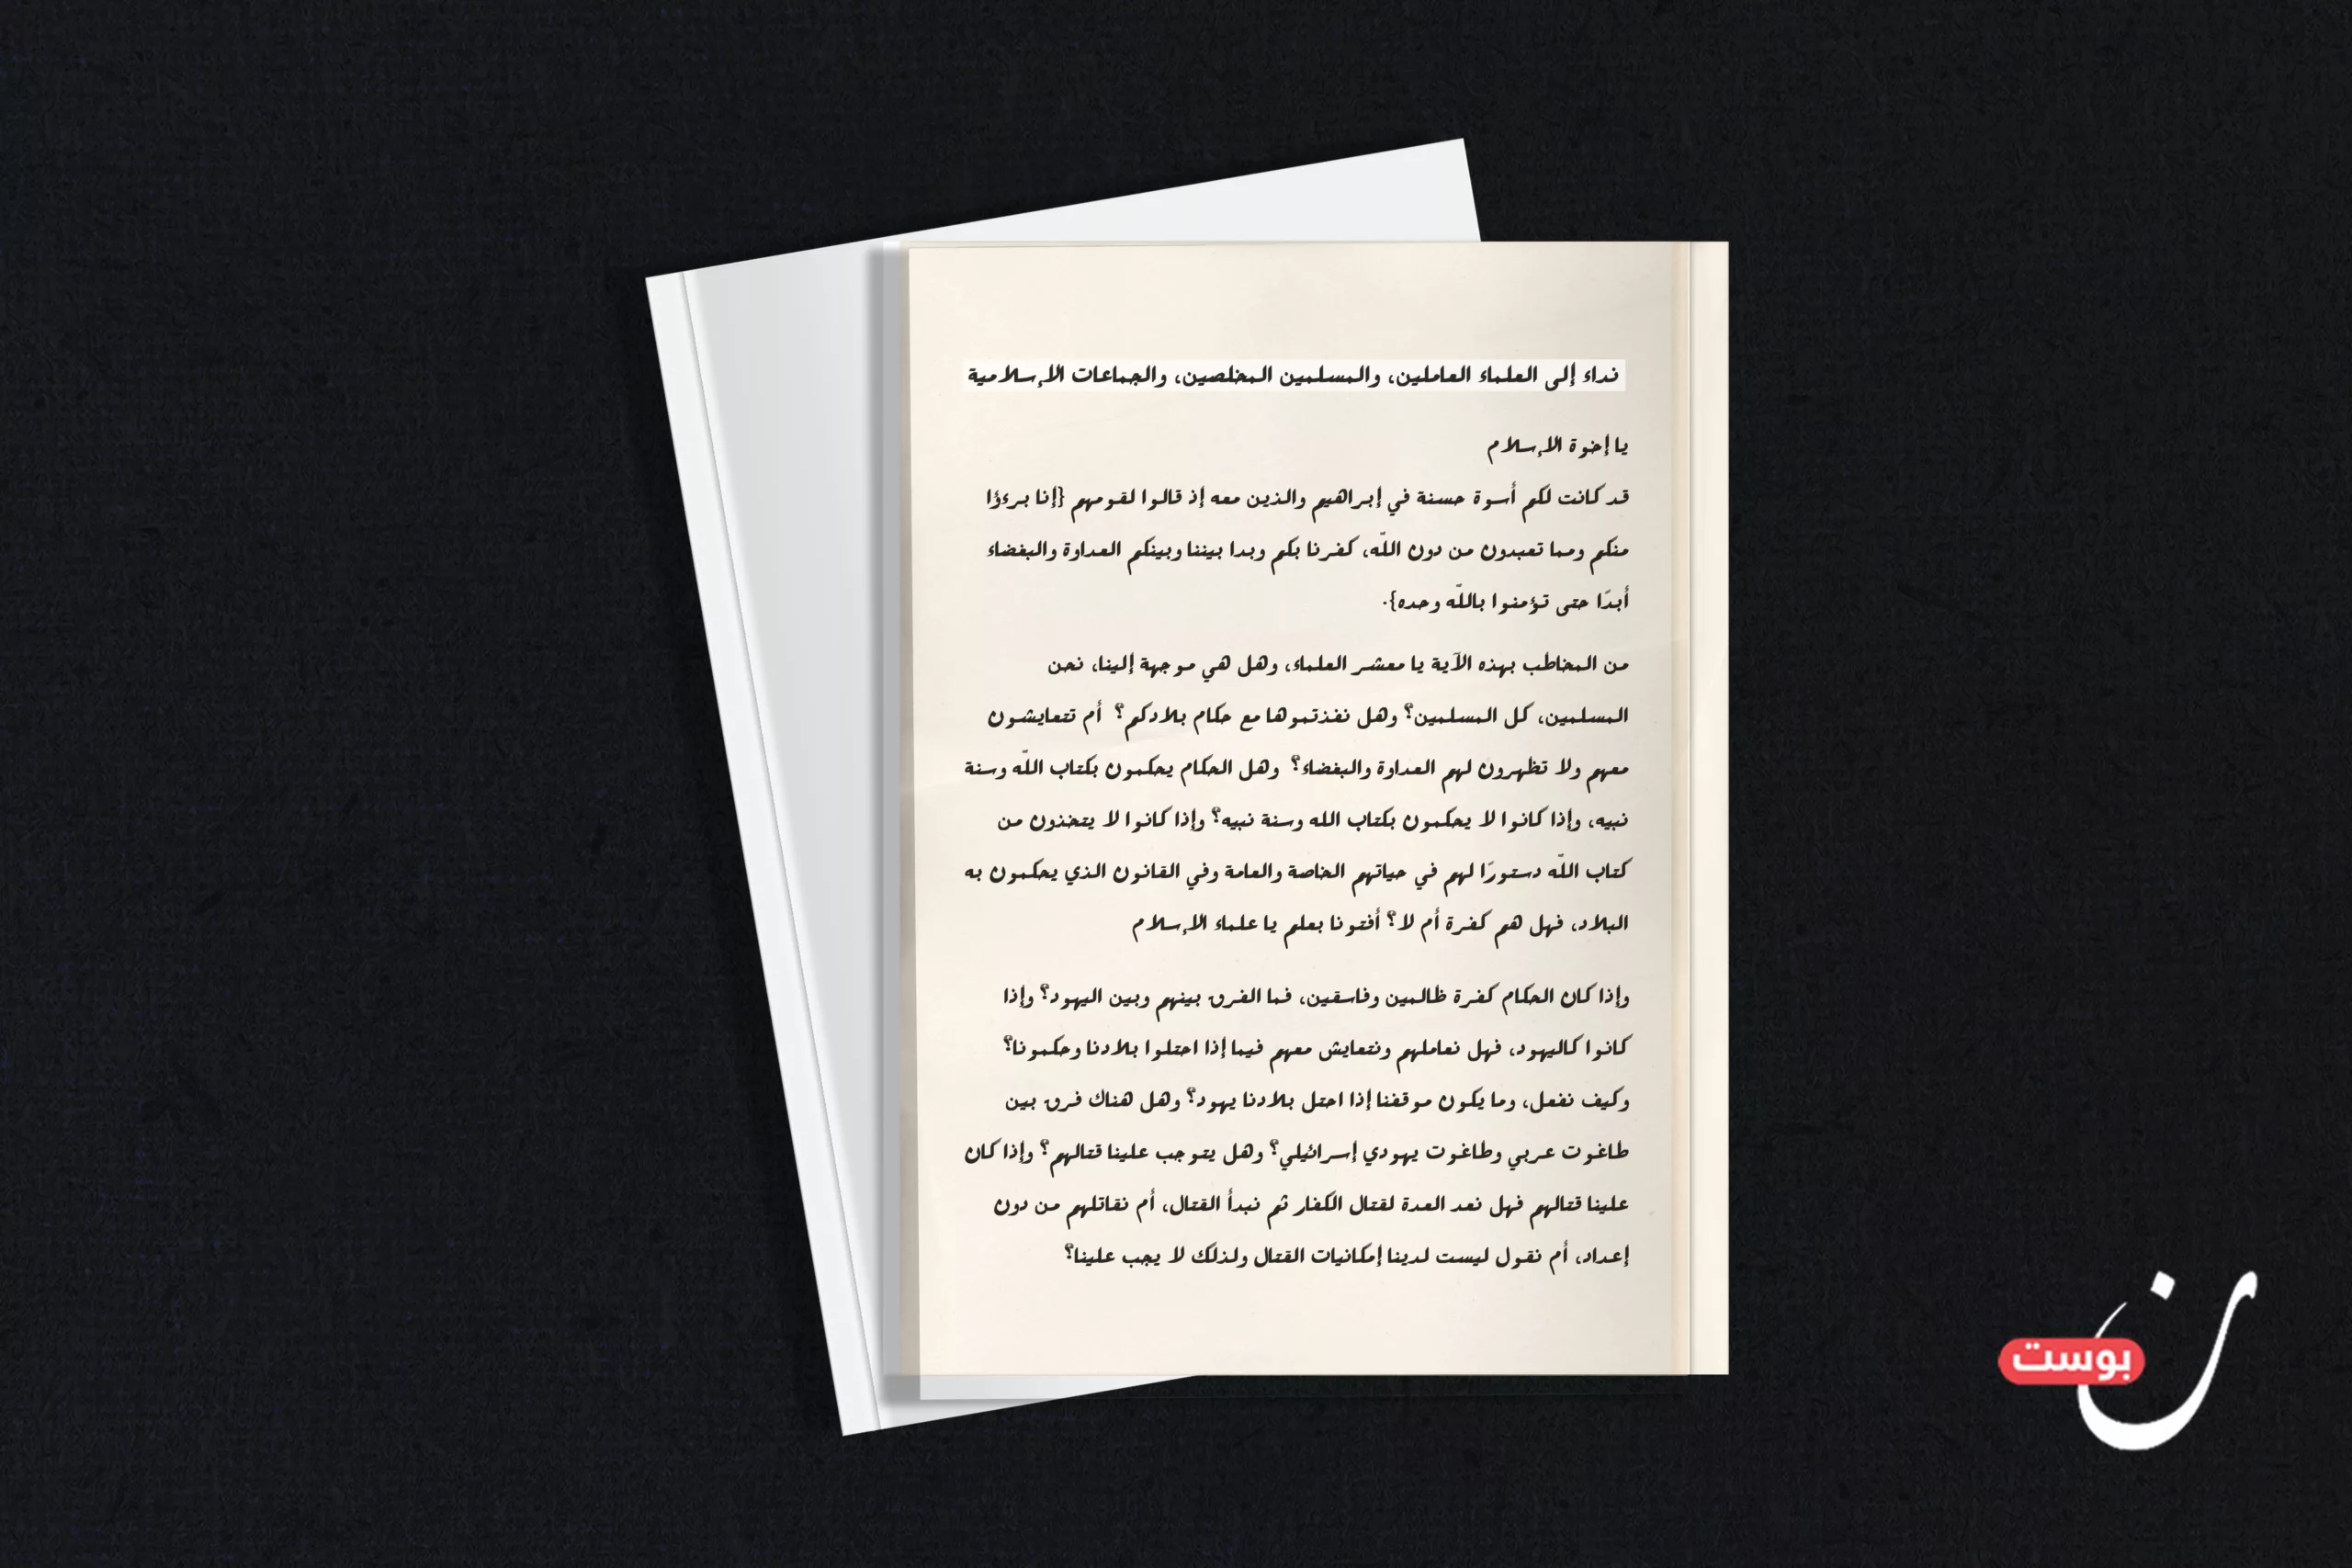 نداء إلى العلماء العاملين، والمسلمين المخلصين، والجماعات الإسلامية
يا إخوة الإسلام
قد كانت لكم أسوة حسنة في إبراهيم والذين معه إذ قالوا لقومهم {إنا برءؤا
منكم ومما تعبدون من دون اللّه، كفرنا بكم وبدا بيننا وبينكم العداوة والبغضاء
أبدًا حتى تؤمنوا باللّه وحده}.
من المخاطب بهذه الآية يا معشر العلماء، وهل هي موجهة إلينا، نحن
المسلمين، كل المسلمين؟ وهل نفذتموها مع حكام بلادكم؟ أم تتعايشون
معهم ولا تظهرون لهم العداوة والبغضاء؟ وهل الحكام يحكمون بكتاب اللّه وسنة
نبيه، وإذا كانوا لا يحكمون بكتاب الله وسنة نبيه؟ وإذا كانوا لا يتخذون من
كتاب اللّه دستورًا لهم في حياتهم الخاصة والعامة وفي القانون الذي يحكمون به
البلاد، فهل هم كفرة أم لا؟ أفتونا بعلم يا علماء الإسلام
وإذا كان الحكام كفرة ظالمين وفاسقين، فما الفرق بينهم وبين اليهود؟ وإذا
كانوا كاليهود، فهل نعاملهم ونتعايش معهم فيما إذا احتلوا بلادنا وحكمونا؟
وكيف نفعل، وما يكون موقفنا إذا احتل بلادنا يهود؟ وهل هناك فرق بين
طاغوت عربي وطاغوت يهودي إسرائيلي؟ وهل يتوجب علينا قتالهم؟ وإذا كان
علينا قتالهم فهل نعد العدة لقتال الكفار ثم نبدأ القتال، أم نقاتلهم من دون
إعداد، أم نقول ليست لدينا إمكانيات القتال ولذلك لا يجب علينا؟
ن
بوست